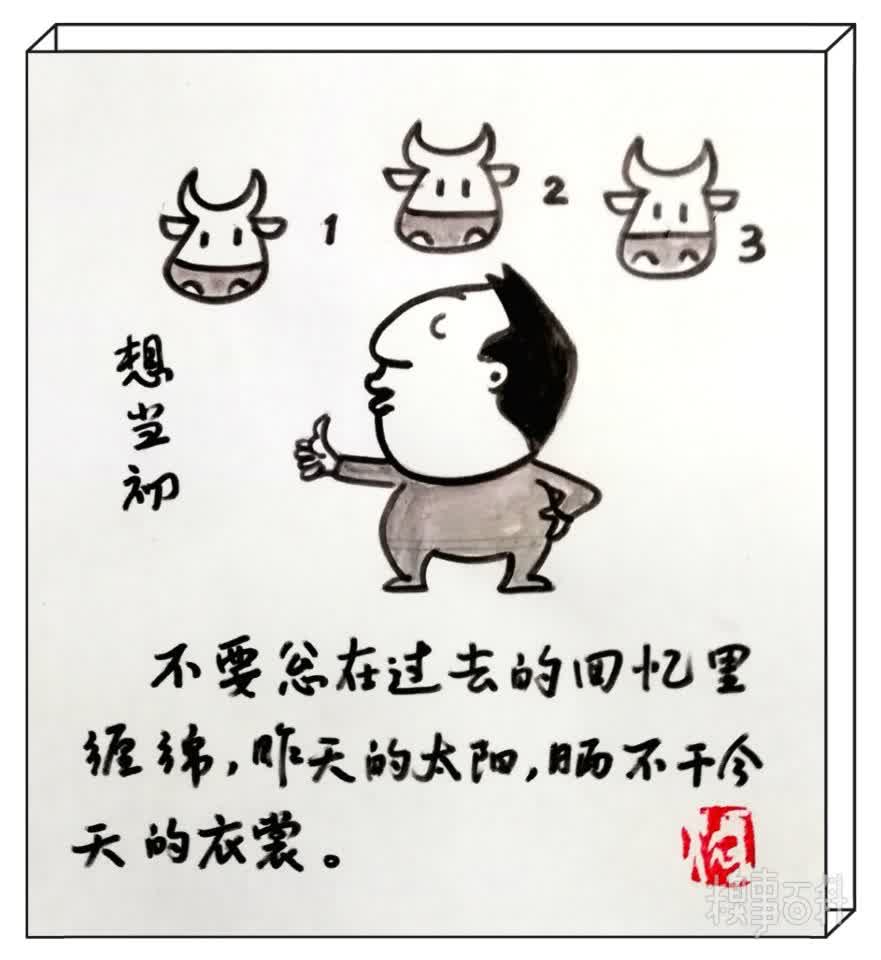 1
2
3
想
当
初
不要总在过去的回忆里
缠绵，昨天的太阳，晒不干今
天的衣裳。
糗事百科